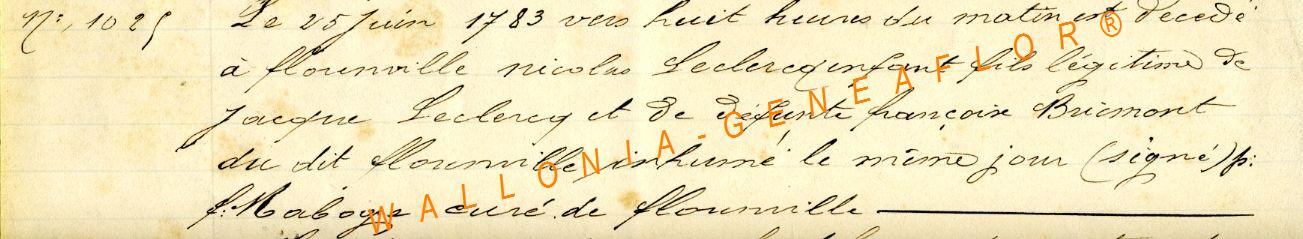 N°. 1025 Le 25 juin 1783 vers huit heures du matin est décédé
à florenville nicolas Leclercq enfant fils légitime de
Jacque Leclercq et de défunte françoise Brémont
du dit florenville, inhumé le même jour (signé) p:
f: Maboge curé de florenville
WALLONIA-GENEAFLOR®